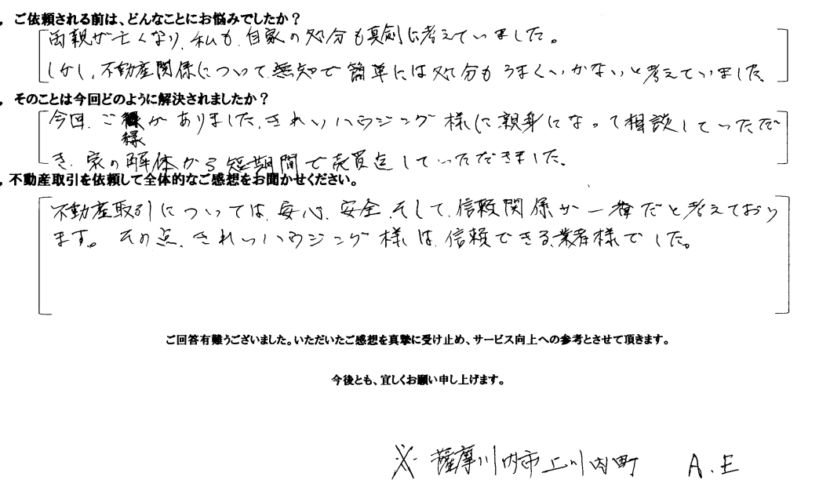 . ご依頼される前は、どんなことにお悩みでしたか？
両親が亡くなり、私も、自家の処分も真剣に考えていました。
しかし、不動産関係について、無知で簡単には処分もうまくいかないと考えていました
. そのことは今回どのように解決されましたか？
今回、ご縁がありました、きれいハウジング様に親身になって相談していただ
き、家の解体から短期間で売買迄していただきました。
. 不動産取引を依頼して全体的なご感想をお聞かせください。
不動産取引については、安心、安全、そして、信頼関係が一番だと考えており
ます。その点、きれいハウジング様は、信頼できる、業者様でした。
ご回答有難うございました。いただいたご感想を真摯に受け止め、サービス向上への参考とさせて頂きます。
今後とも、宜しくお願い申し上げます。
※ 薩摩川内市上川内町 A.E